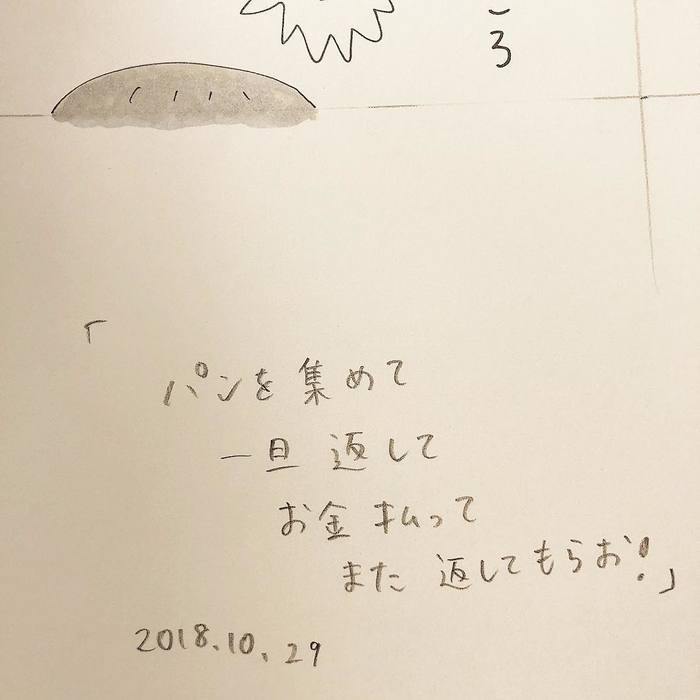 ころ
「
パンを集めて
一旦返して
お金払って
また返してもらお!」
2018.10.29